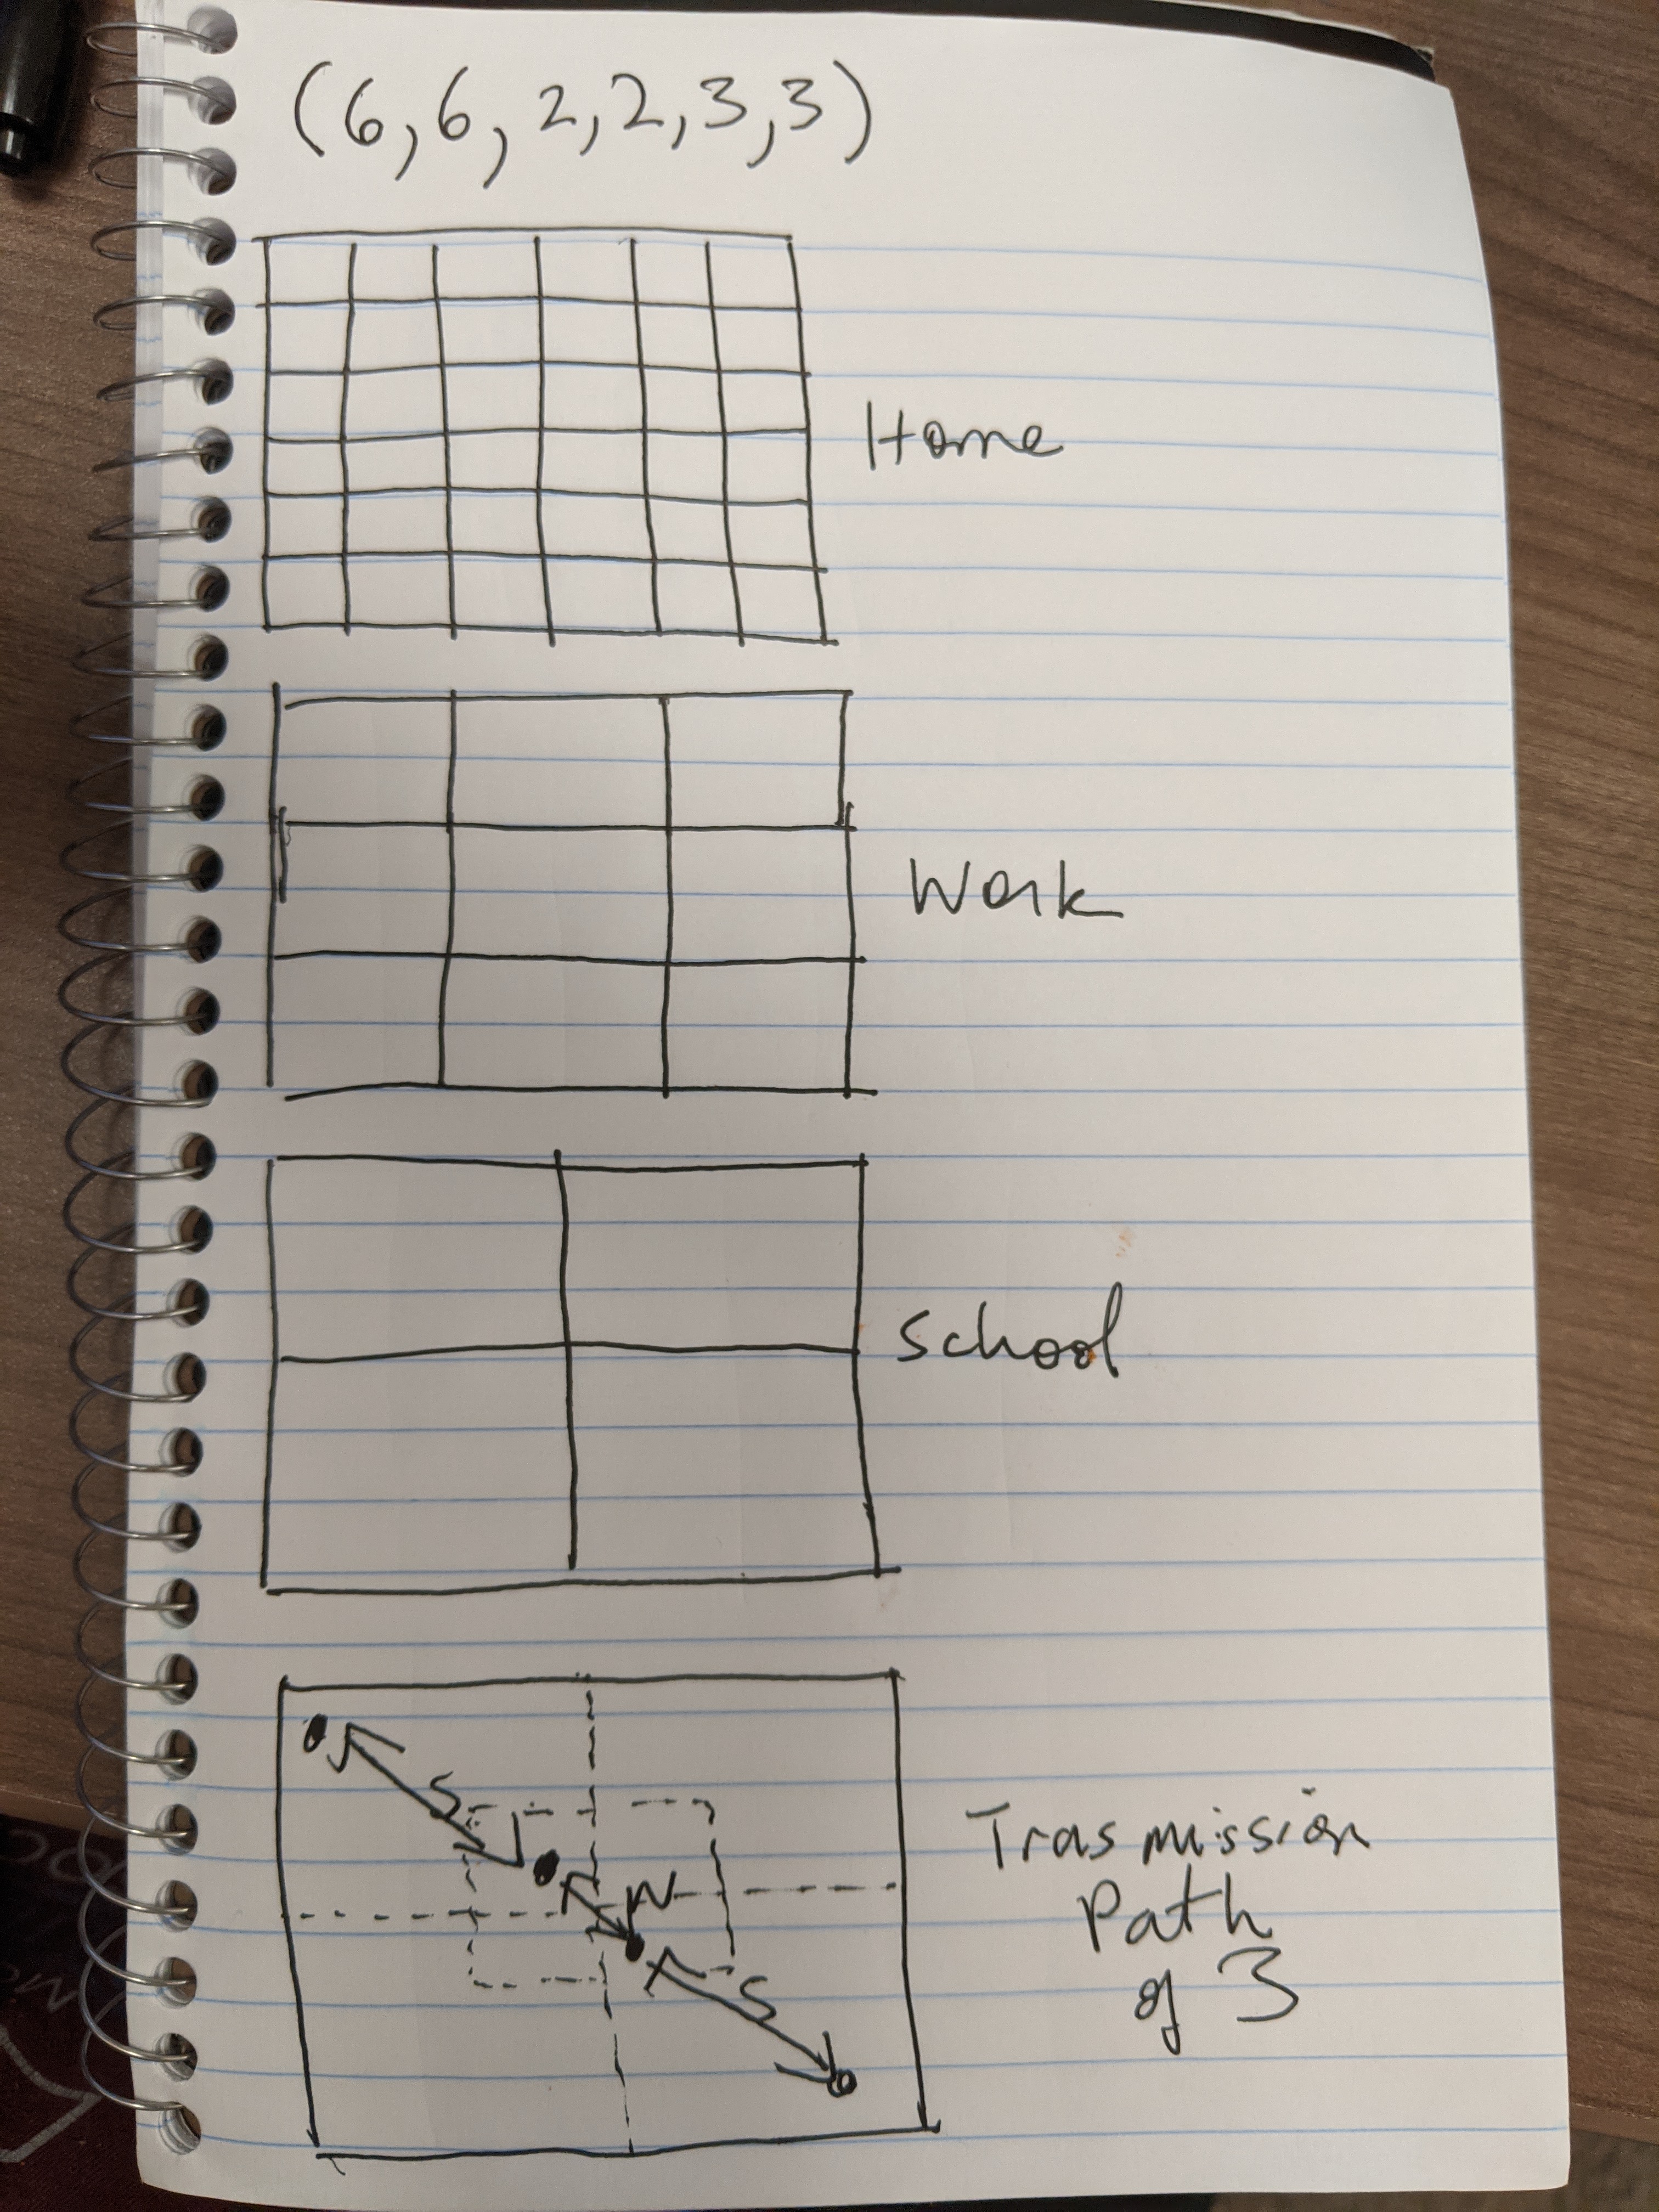 (6,6,2,2,3,3)
Home
Work
School
S
N
S
Trasmission
Path
of 3